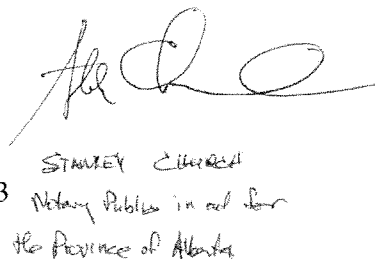 STANLEY CHURCH
3
Notary Public in and for
the Province of Alberta